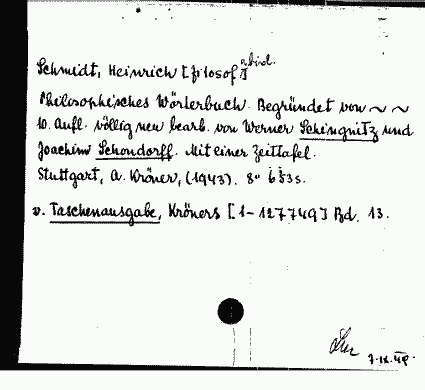 Schmidt, Heinrich [filosof
Philosophisches Wörterbuch. Begründet von ~ ~
10. Aufl. völlig neu bearb. von Werner Schingnitz und
Joachim Schondorff. Mit einer Zeittafel.
Stuttgart, A. Kröner, (1943). 8° 653 s.
v. Taschenausgabe, Kröners [1-127749] Bd. 13.
7.IX.48.